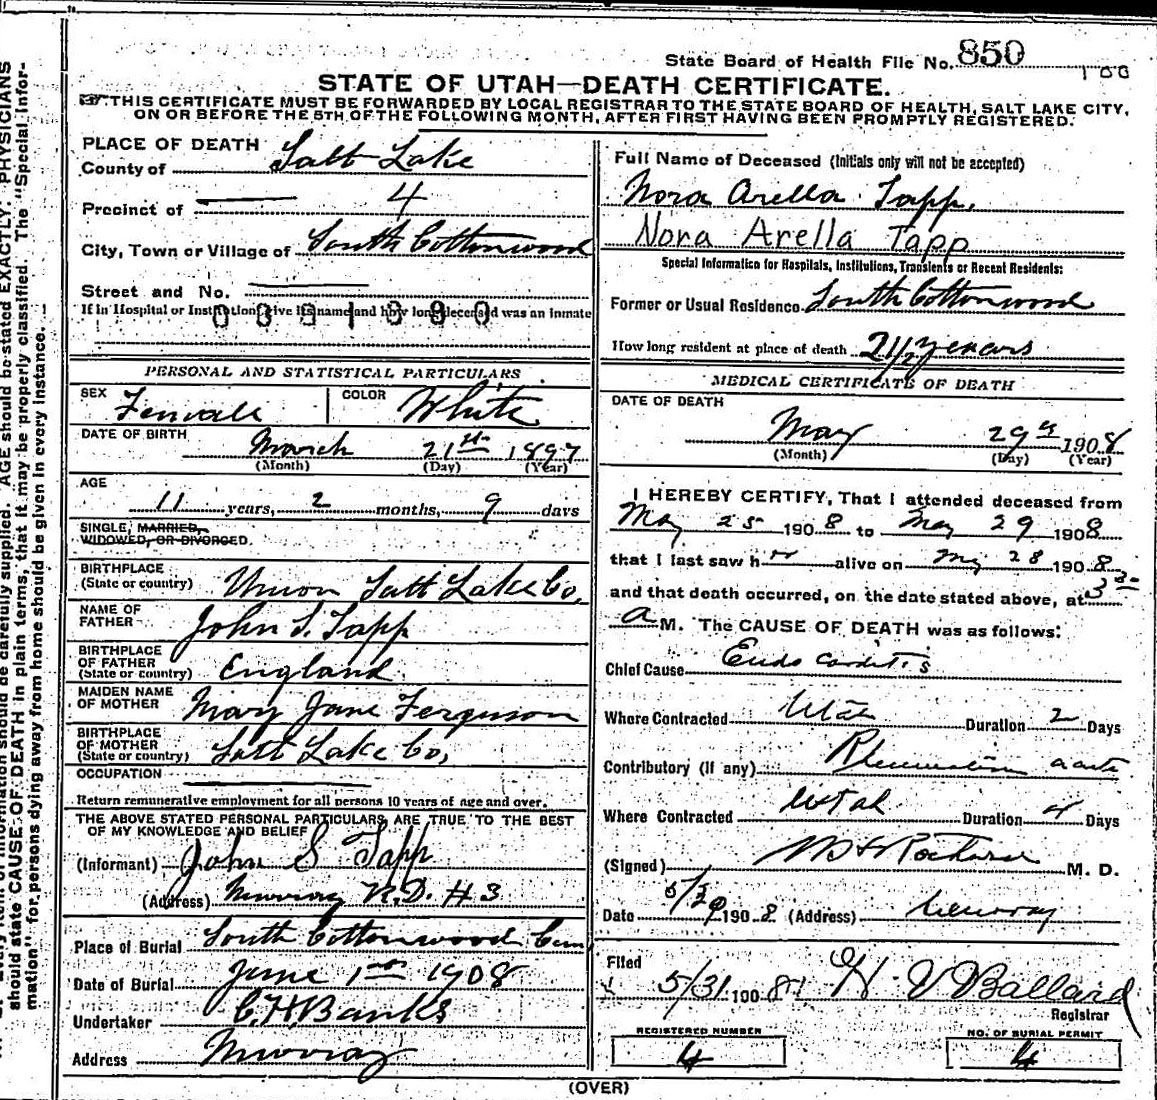 State Board of Health File No. 850
100
STATE OF UTAH—DEATH CERTIFICATE.
THIS CERTIFICATE MUST BE FORWARDED BY LOCAL REGISTRAR TO THE STATE BOARD OF HEALTH, SALT LAKE CITY,
ON OR BEFORE THE 5TH OF THE FOLLOWING MONTH, AFTER FIRST HAVING BEEN PROMPTLY REGISTERED.
PLACE OF DEATH
County of Salt Lake
Precinct of 4
City, Town or Village of South Cottonwood
Street and No.
If in Hospital or Institution, give its name and how long deceased was an inmate
PERSONAL AND STATISTICAL PARTICULARS
SEX Female COLOR White
DATE OF BIRTH March 21st 1897
(Month) (Day) (Year)
AGE
11 years, 2 months, 9 days
SINGLE, MARRIED,
WIDOWED, OR DIVORCED.
BIRTHPLACE
(State or country) Union Salt Lake Co,
NAME OF
FATHER John S. Tapp
BIRTHPLACE
OF FATHER
(State or country) England
MAIDEN NAME
OF MOTHER Mary Jane Ferguson
BIRTHPLACE
OF MOTHER
(State or country) Salt Lake Co,
OCCUPATION
Return remunerative employment for all persons 10 years of age and over.
THE ABOVE STATED PERSONAL PARTICULARS ARE TRUE TO THE BEST
OF MY KNOWLEDGE AND BELIEF
(Informant) John S Tapp
(Address) Murray R.D. #3
Place of Burial South Cottonwood Cem
Date of Burial June 1st 1908
Undertaker C.H. Banks
Address Murray
Full Name of Deceased (Initials only will not be accepted)
Nora Arella Tapp.
Nora Arella Tapp
Special Information for Hospitals, Institutions, Transients or Recent Residents:
Former or Usual Residence South Cottonwood
How long resident at place of death 2 1/2 years
MEDICAL CERTIFICATE OF DEATH
DATE OF DEATH
May 29th 1908
(Month) (Day) (Year)
I HEREBY CERTIFY, That I attended deceased from
May 25 1908 to May 29 1908
that I last saw her alive on May 28 1908
and that death occurred, on the date stated above, at 3 30
A M. The CAUSE OF DEATH was as follows:
Chief Cause Endo carditis
Where Contracted Utah Duration 2 Days
Contributory (if any) Rheumatism acute
Where Contracted Utah Duration 4 Days
(Signed) M. D.
Date 5/29 1908 (Address) Murray
Filed
5/31 1908 H. V Ballard
Registrar
REGISTERED NUMBER
4
NO. OF BURIAL PERMIT
4
(OVER)
AGE should be stated EXACTLY. PHYSICIANS
should state CAUSE OF DEATH in plain terms, that it may be properly classified. The "Special Infor-
mation" for persons dying away from home should be given in every instance.